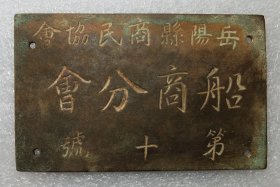 岳陽縣商民協會
船商分會
第十號